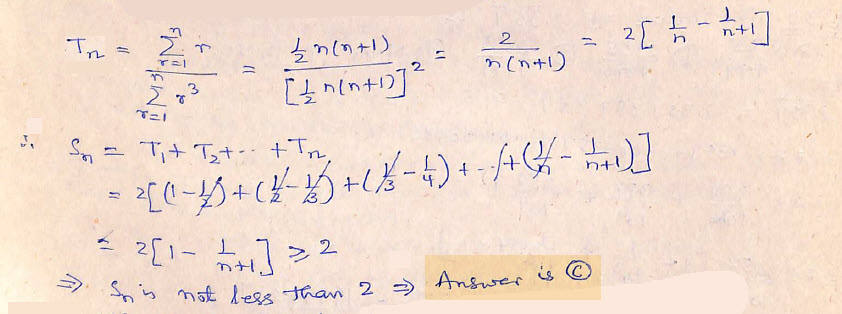 T_n = \frac{\sum_{r=1}^{n} r}{\sum_{r=1}^{n} r^3} = \frac{\frac{1}{2} n(n+1)}{[\frac{1}{2} n(n+1)]^2} = \frac{2}{n(n+1)} = 2[\frac{1}{n} - \frac{1}{n+1}]
∴ S_n = T_1 + T_2 + -- + T_n
= 2[(1 - \frac{1}{2}) + (\frac{1}{2} - \frac{1}{3}) + (\frac{1}{3} - \frac{1}{4}) + -- + (\frac{1}{n} - \frac{1}{n+1})]
= 2[1 - \frac{1}{n+1}] ⩾ 2
⇒ S_n is not less than 2 ⇒ Answer is Ⓒ